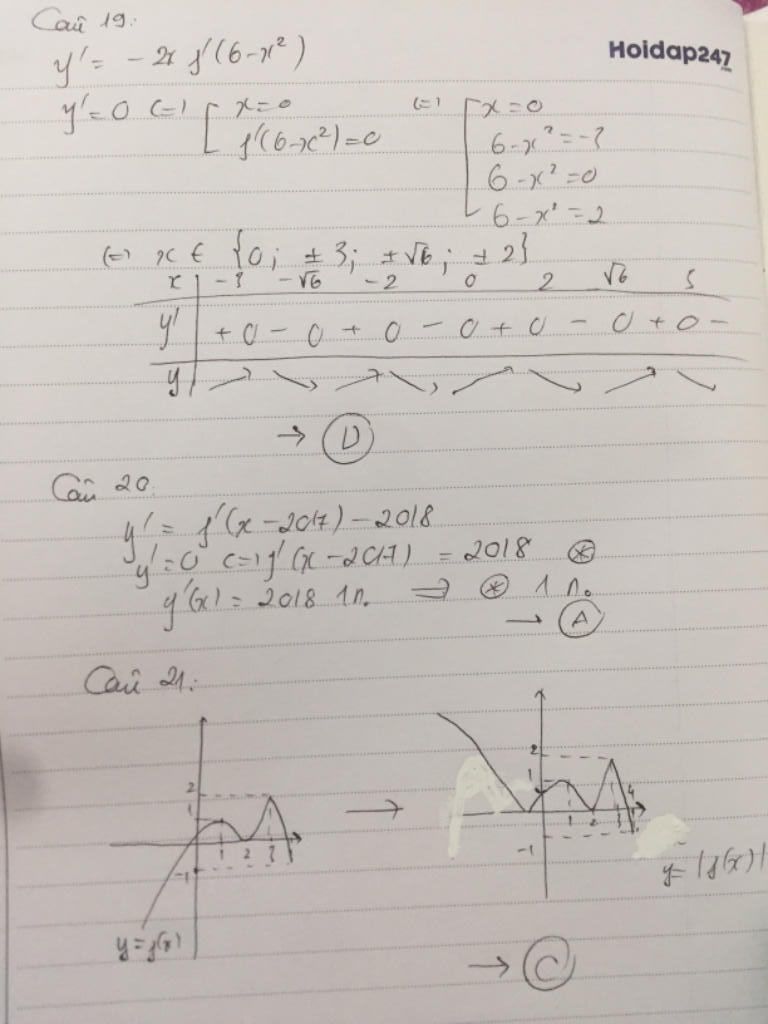 Câu 19:
Hoidap247
y' = -2x f'(6-x²)
y' = 0 (=) [ x=0 (=) [ x=0
f'(6-x²)=0 6-x²=-3
6-x²=0
6-x²=2
(=) x ∈ {0; ±3; ±√6; ±2}
x -3 -√6 -2 0 2 √6 3
y' + 0 - 0 + 0 - 0 + 0 - 0 + 0 -
y ↗ ↘ ↗ ↘ ↗ ↘ ↗ ↘
→ D
Câu 20.
y' = f'(x-2017) - 2018
y'=0 (=) f'(x-2017) = 2018 ⊛
y'(x) = 2018 1n. => ⊛ 1 n.
→ A
Câu 21:
2
1
1 2 3
-1
y=f(x)
→
2
1
1 2 3 4
-1
y= |f(x)|
→ C